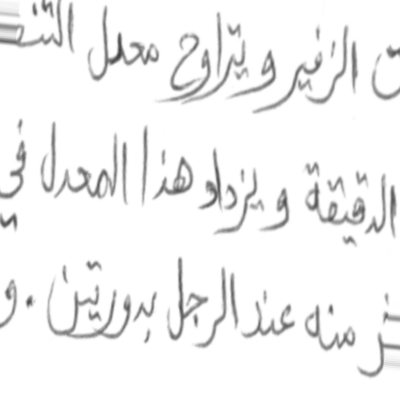 الزفير ويتراوح معدل
الدقيقة ويزداد هذا المعدل في
منه عند الرجل بدورتين. و